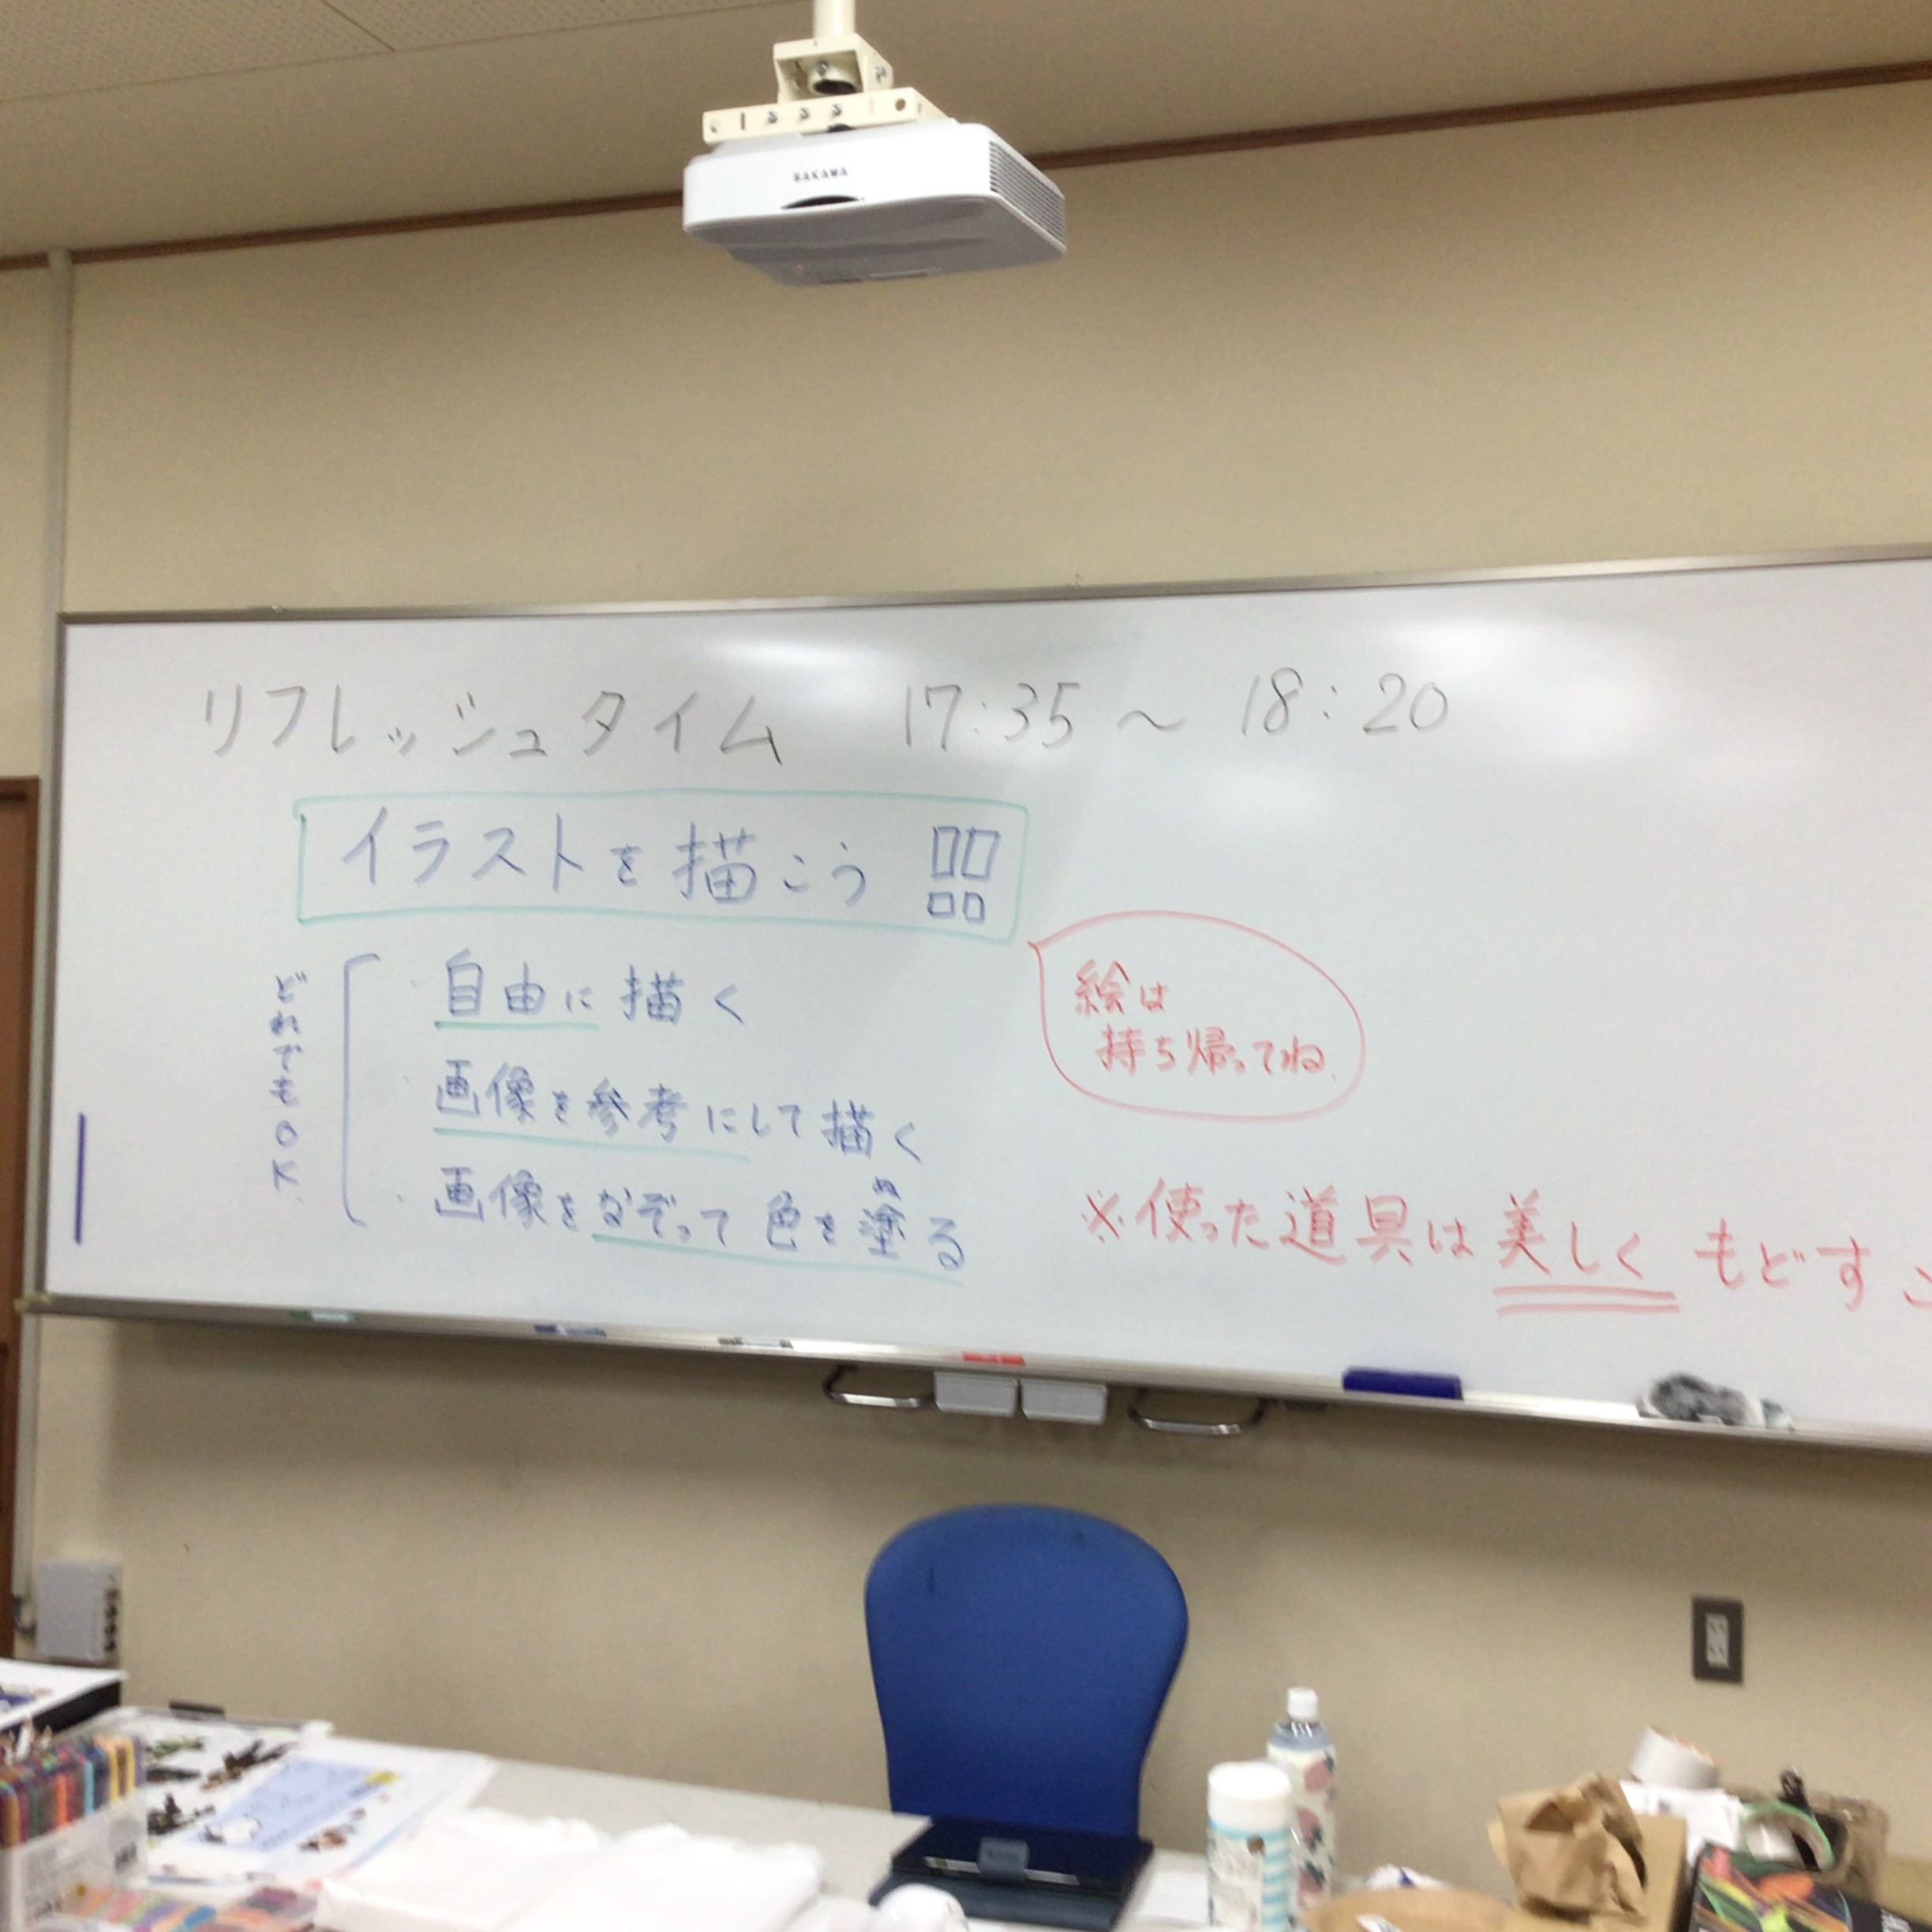 SAKAWA
リフレッシュタイム 17:35～18:20
イラストを描こう
どれでもOK
・自由に描く
・画像を参考にして描く
・画像をなぞって色を塗る
ぬ
絵は
持ち帰ってね
※使った道具は美しくもどすこ